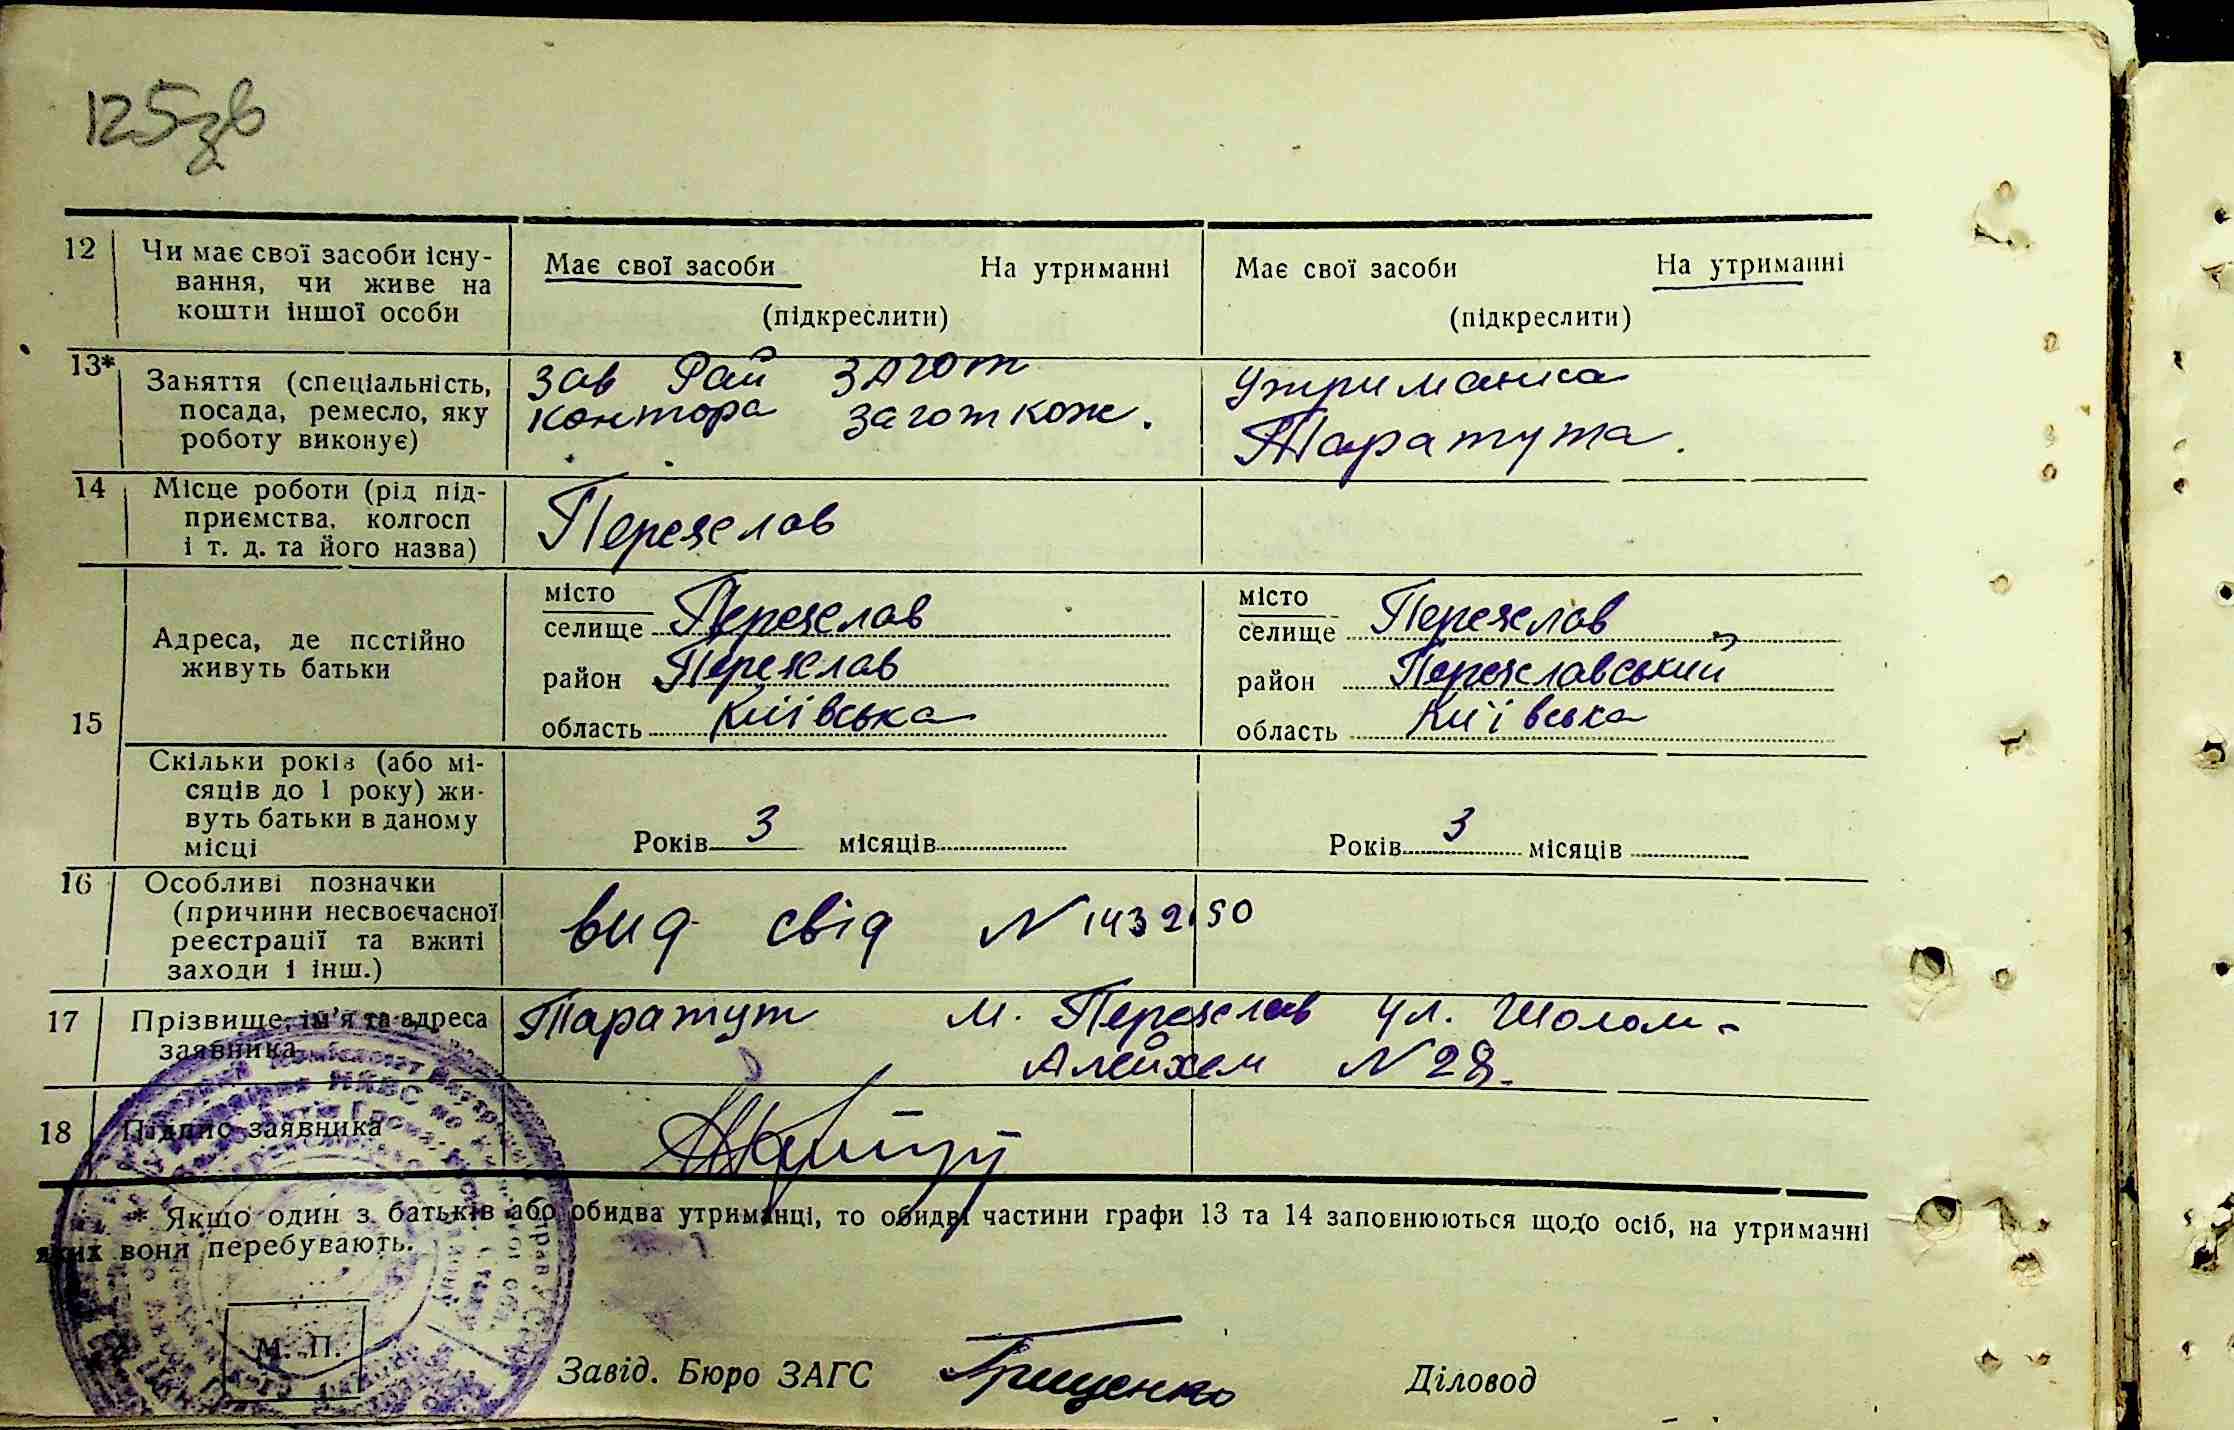 125зв
12 Чи має свої засоби існу-
вання, чи живе на
кошти іншої особи
Має свої засоби На утриманні
(підкреслити)
Має свої засоби На утриманні
(підкреслити)
13* Заняття (спеціальність,
посада, ремесло, яку
роботу виконує)
зав Рай загот
контора заготкож.
Утриманка
Таратута.
14 Місце роботи (рід під-
приємства, колгосп
і т. д. та його назва)
Переяслав
15 Адреса, де постійно
живуть батьки
місто
селище Переяслав
район Переяслав
область Київська
місто
селище Переяслав
район Переяславський
область Київська
Скільки років (або мі-
сяців до 1 року) жи-
вуть батьки в даному
місці
Років 3 місяців
Років 3 місяців
16 Особливі позначки
(причини несвоєчасної
реєстрації та вжиті
заходи і інш.)
вид свід N 143250
17 Прізвище, ім'я та адреса
заявника
Таратут м. Переяслав ул. Шолом-
Алейхем N 28.
18 Підпис заявника
* Якщо один з батьків або обидва утриманці, то обидві частини графи 13 та 14 заповнюються щодо осіб, на утриманні
яких вони перебувають.
М. П.
Завід. Бюро ЗАГС Грищенко Діловод